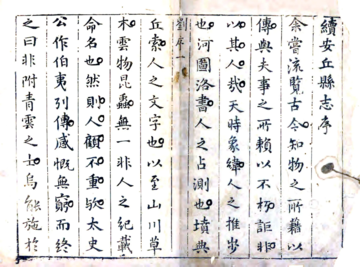 續安丘縣志序
余嘗流覧古今知物之所藉以
傳與夫事之所賴以不朽詎非
以其人哉天時象緯人之推步
也河圖洛書人之占測也墳典
劉序一
丘索人之文字也以至山川草
木雲物昆蟲無一非人之紀載
命名也然則人顧不重歟太史
公作伯夷列傳感慨無窮而終
之曰非附青雲之士烏能施於